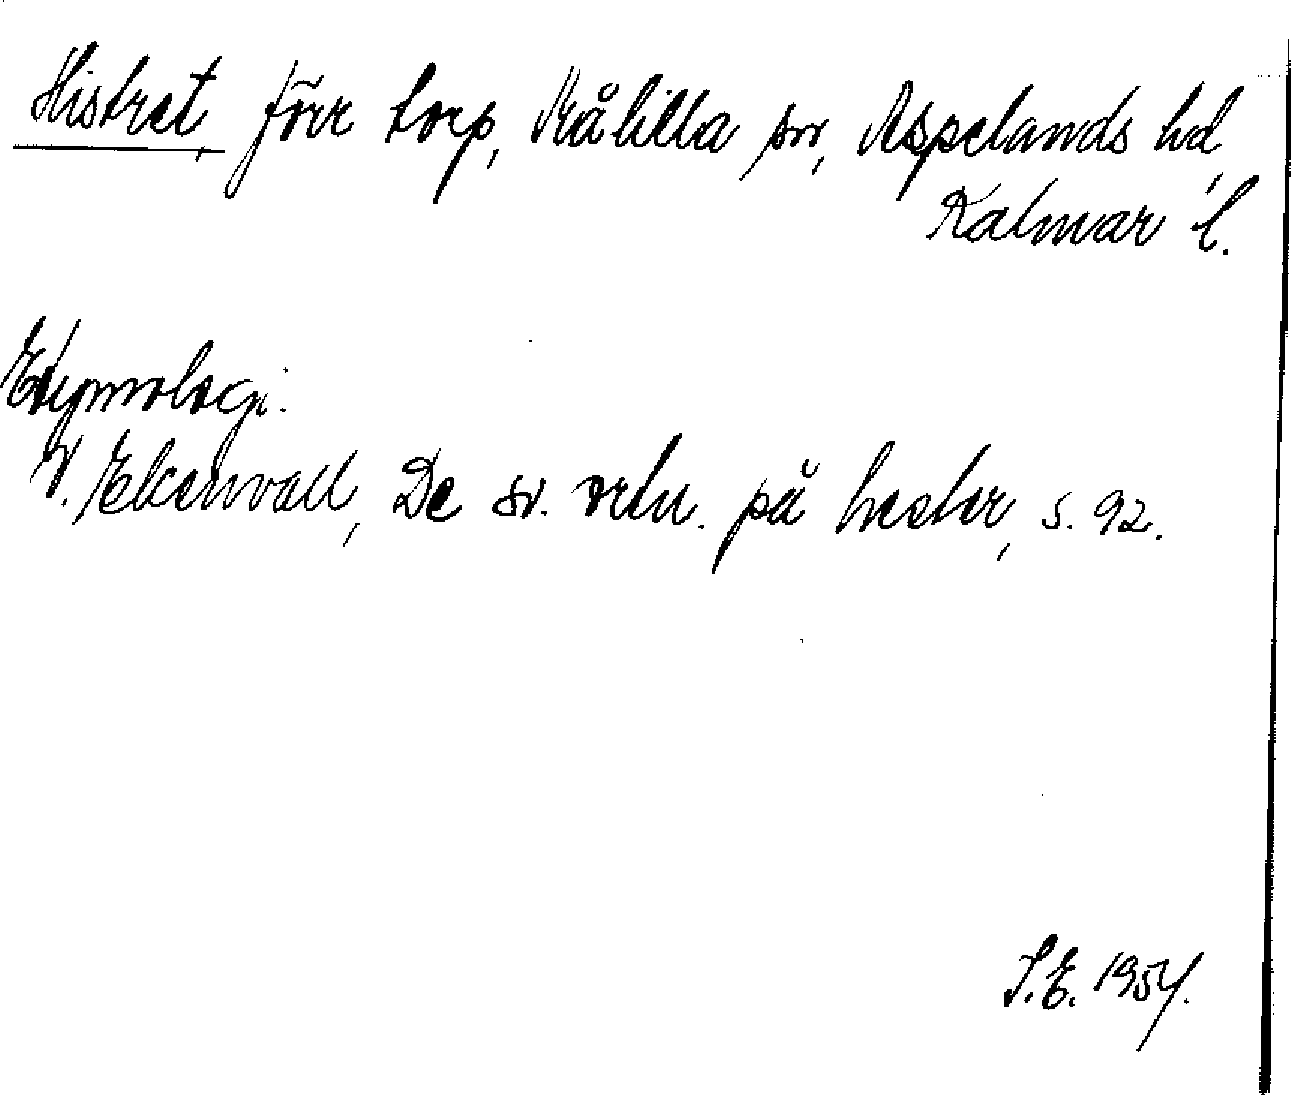 Histret, förr torp, Målilla sn, Aspelands hd,
Kalmar l.
Etymologi:
V. Ekenvall, De sv. ortn. på hester, s. 92.
S.E. 1954.